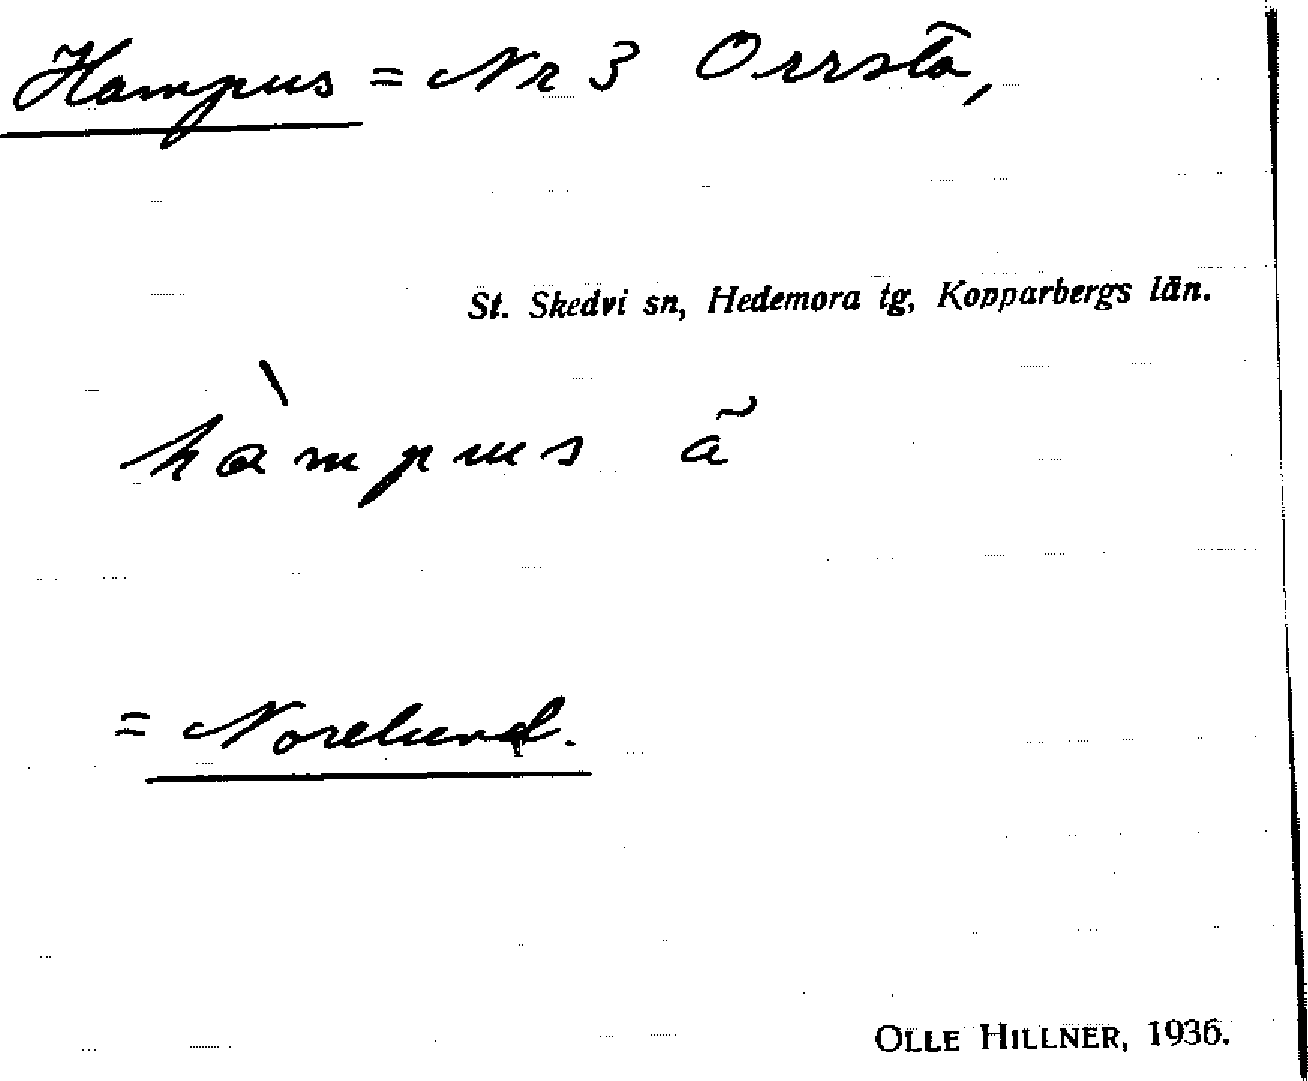 Hampus = Nr 3 Orrsta,
St. Skedvi sn, Hedemora tg, Kopparbergs län.
hàmpus ã
= Norelund.
OLLE HILLNER, 1936.